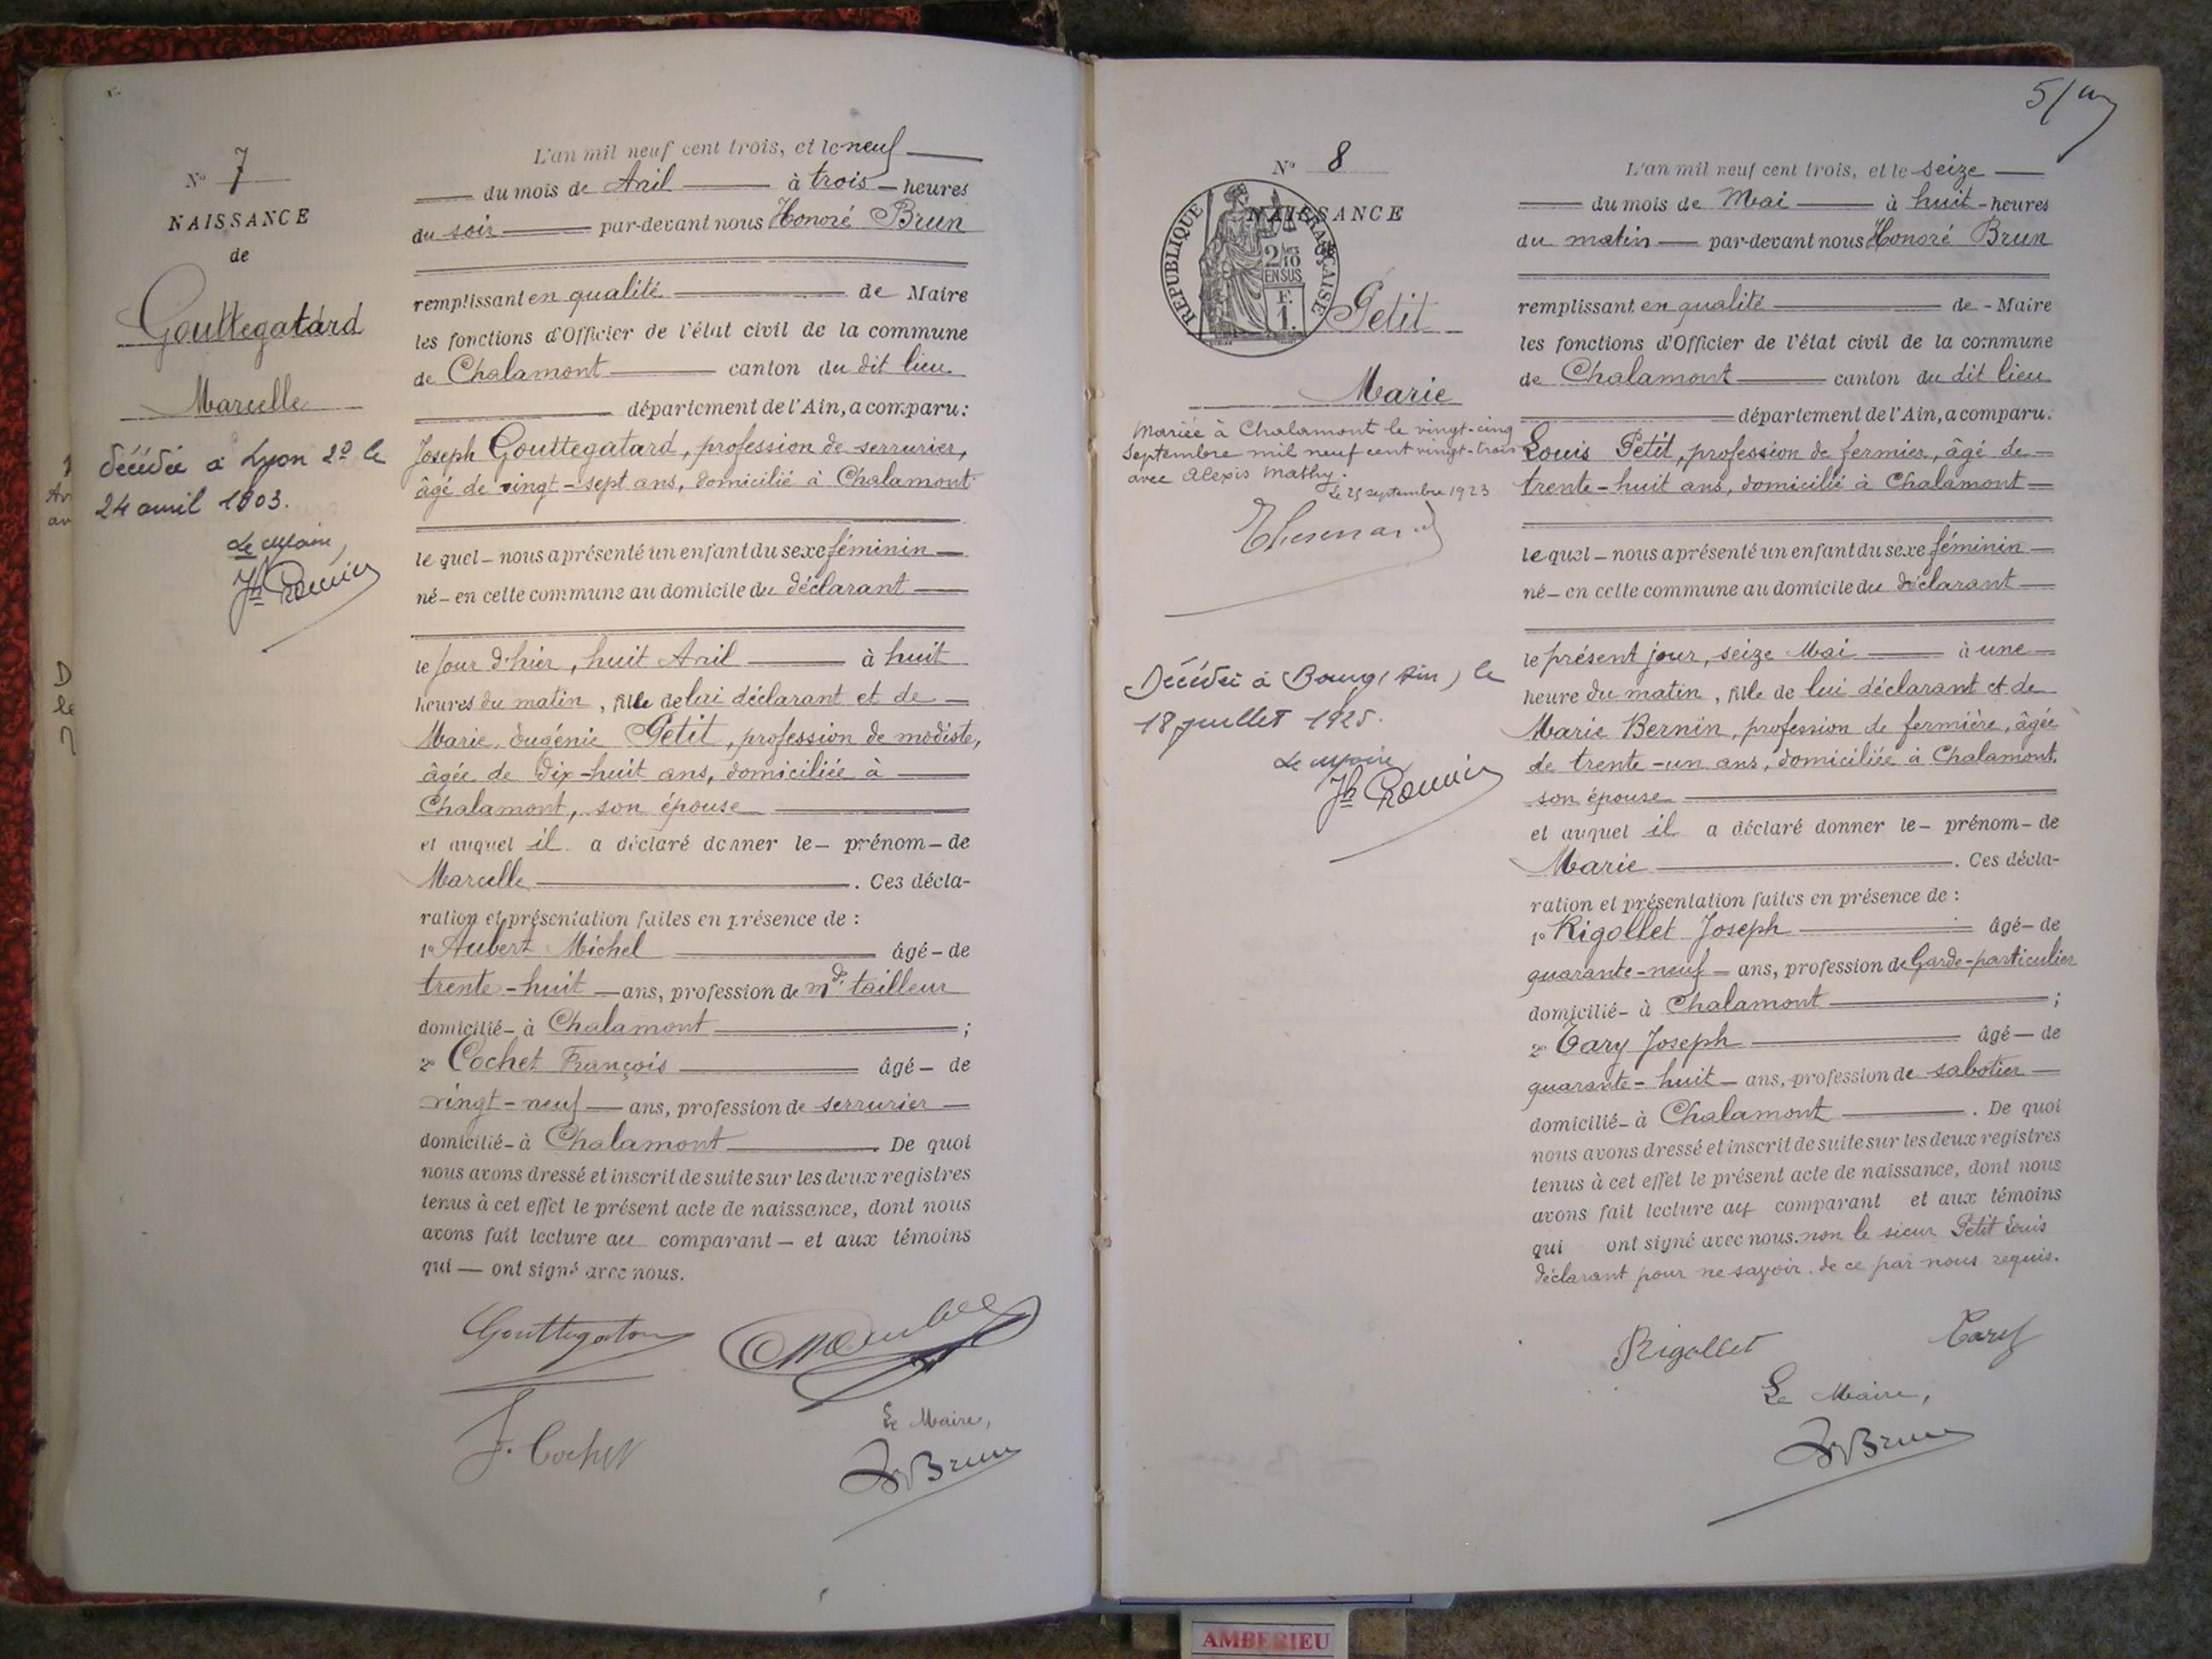 N° 7
NAISSANCE
de
Gouttegatard
Marcelle
décédée à Lyon 2e le
24 avril 1903.
Le Maire,
L'an mil neuf cent trois, et le neuf
du mois de Avril à trois heures
du soir par-devant nous Honoré Brun
remplissant en qualité de Maire
les fonctions d'Officier de l'état civil de la commune
de Chalamont canton du dit lieu
département de l'Ain, a comparu:
Joseph Gouttegatard, profession de serrurier,
âgé de vingt-sept ans, domicilié à Chalamont
le quel nous a présenté un enfant du sexe féminin
né en cette commune au domicile du déclarant
le jour d'hier, huit Avril à huit
heures du matin, fille de lui déclarant et de
Marie Eugénie Petit, profession de modiste,
âgée de dix-huit ans, domiciliée à
Chalamont, son épouse
et auquel il a déclaré donner le prénom de
Marcelle. Ces décla-
ration et présentation faites en présence de :
1° Aubert Michel âgé de
trente-huit ans, profession de md tailleur
domicilié à Chalamont ;
2° Cochet François âgé de
vingt-neuf ans, profession de serrurier
domicilié à Chalamont. De quoi
nous avons dressé et inscrit de suite sur les deux registres
tenus à cet effet le présent acte de naissance, dont nous
avons fait lecture au comparant et aux témoins
qui ont signé avec nous.
Gouttegatard
J. Cochet
Le Maire,
H Brun
5/
N° 8
NAISSANCE
RÉPUBLIQUE FRANÇAISE
2/10
EN SUS
F.
1.
Petit
Marie
Mariée à Chalamont le vingt-cinq
Septembre mil neuf cent vingt-trois
avec Alexis Mathy.
Le 25 septembre 1923
Décédée à Bourg (Ain) le
18 juillet 1925.
Le Maire
L'an mil neuf cent trois, et le seize
du mois de Mai à huit heures
du matin par-devant nous Honoré Brun
remplissant en qualité de Maire
les fonctions d'Officier de l'état civil de la commune
de Chalamont canton du dit lieu
département de l'Ain, a comparu.
Louis Petit, profession de fermier, âgé de
trente-huit ans, domicilié à Chalamont
le quel nous a présenté un enfant du sexe féminin
né en cette commune au domicile du déclarant
le présent jour, seize Mai à une
heure du matin, fille de lui déclarant et de
Marie Bernin, profession de fermière, âgée
de trente-un ans, domiciliée à Chalamont,
son épouse
et auquel il a déclaré donner le prénom de
Marie. Ces décla-
ration et présentation faites en présence de :
1° Rigollet Joseph âgé de
quarante-neuf ans, profession de Garde-particulier
domicilié à Chalamont ;
2° Cary Joseph âgé de
quarante-huit ans, profession de sabotier
domicilié à Chalamont. De quoi
nous avons dressé et inscrit de suite sur les deux registres
tenus à cet effet le présent acte de naissance, dont nous
avons fait lecture au comparant et aux témoins
qui ont signé avec nous. non le sieur Petit Louis
déclarant pour ne savoir. de ce par nous requis.
Rigollet
Cary
Le Maire,
H Brun
AMBERIEU